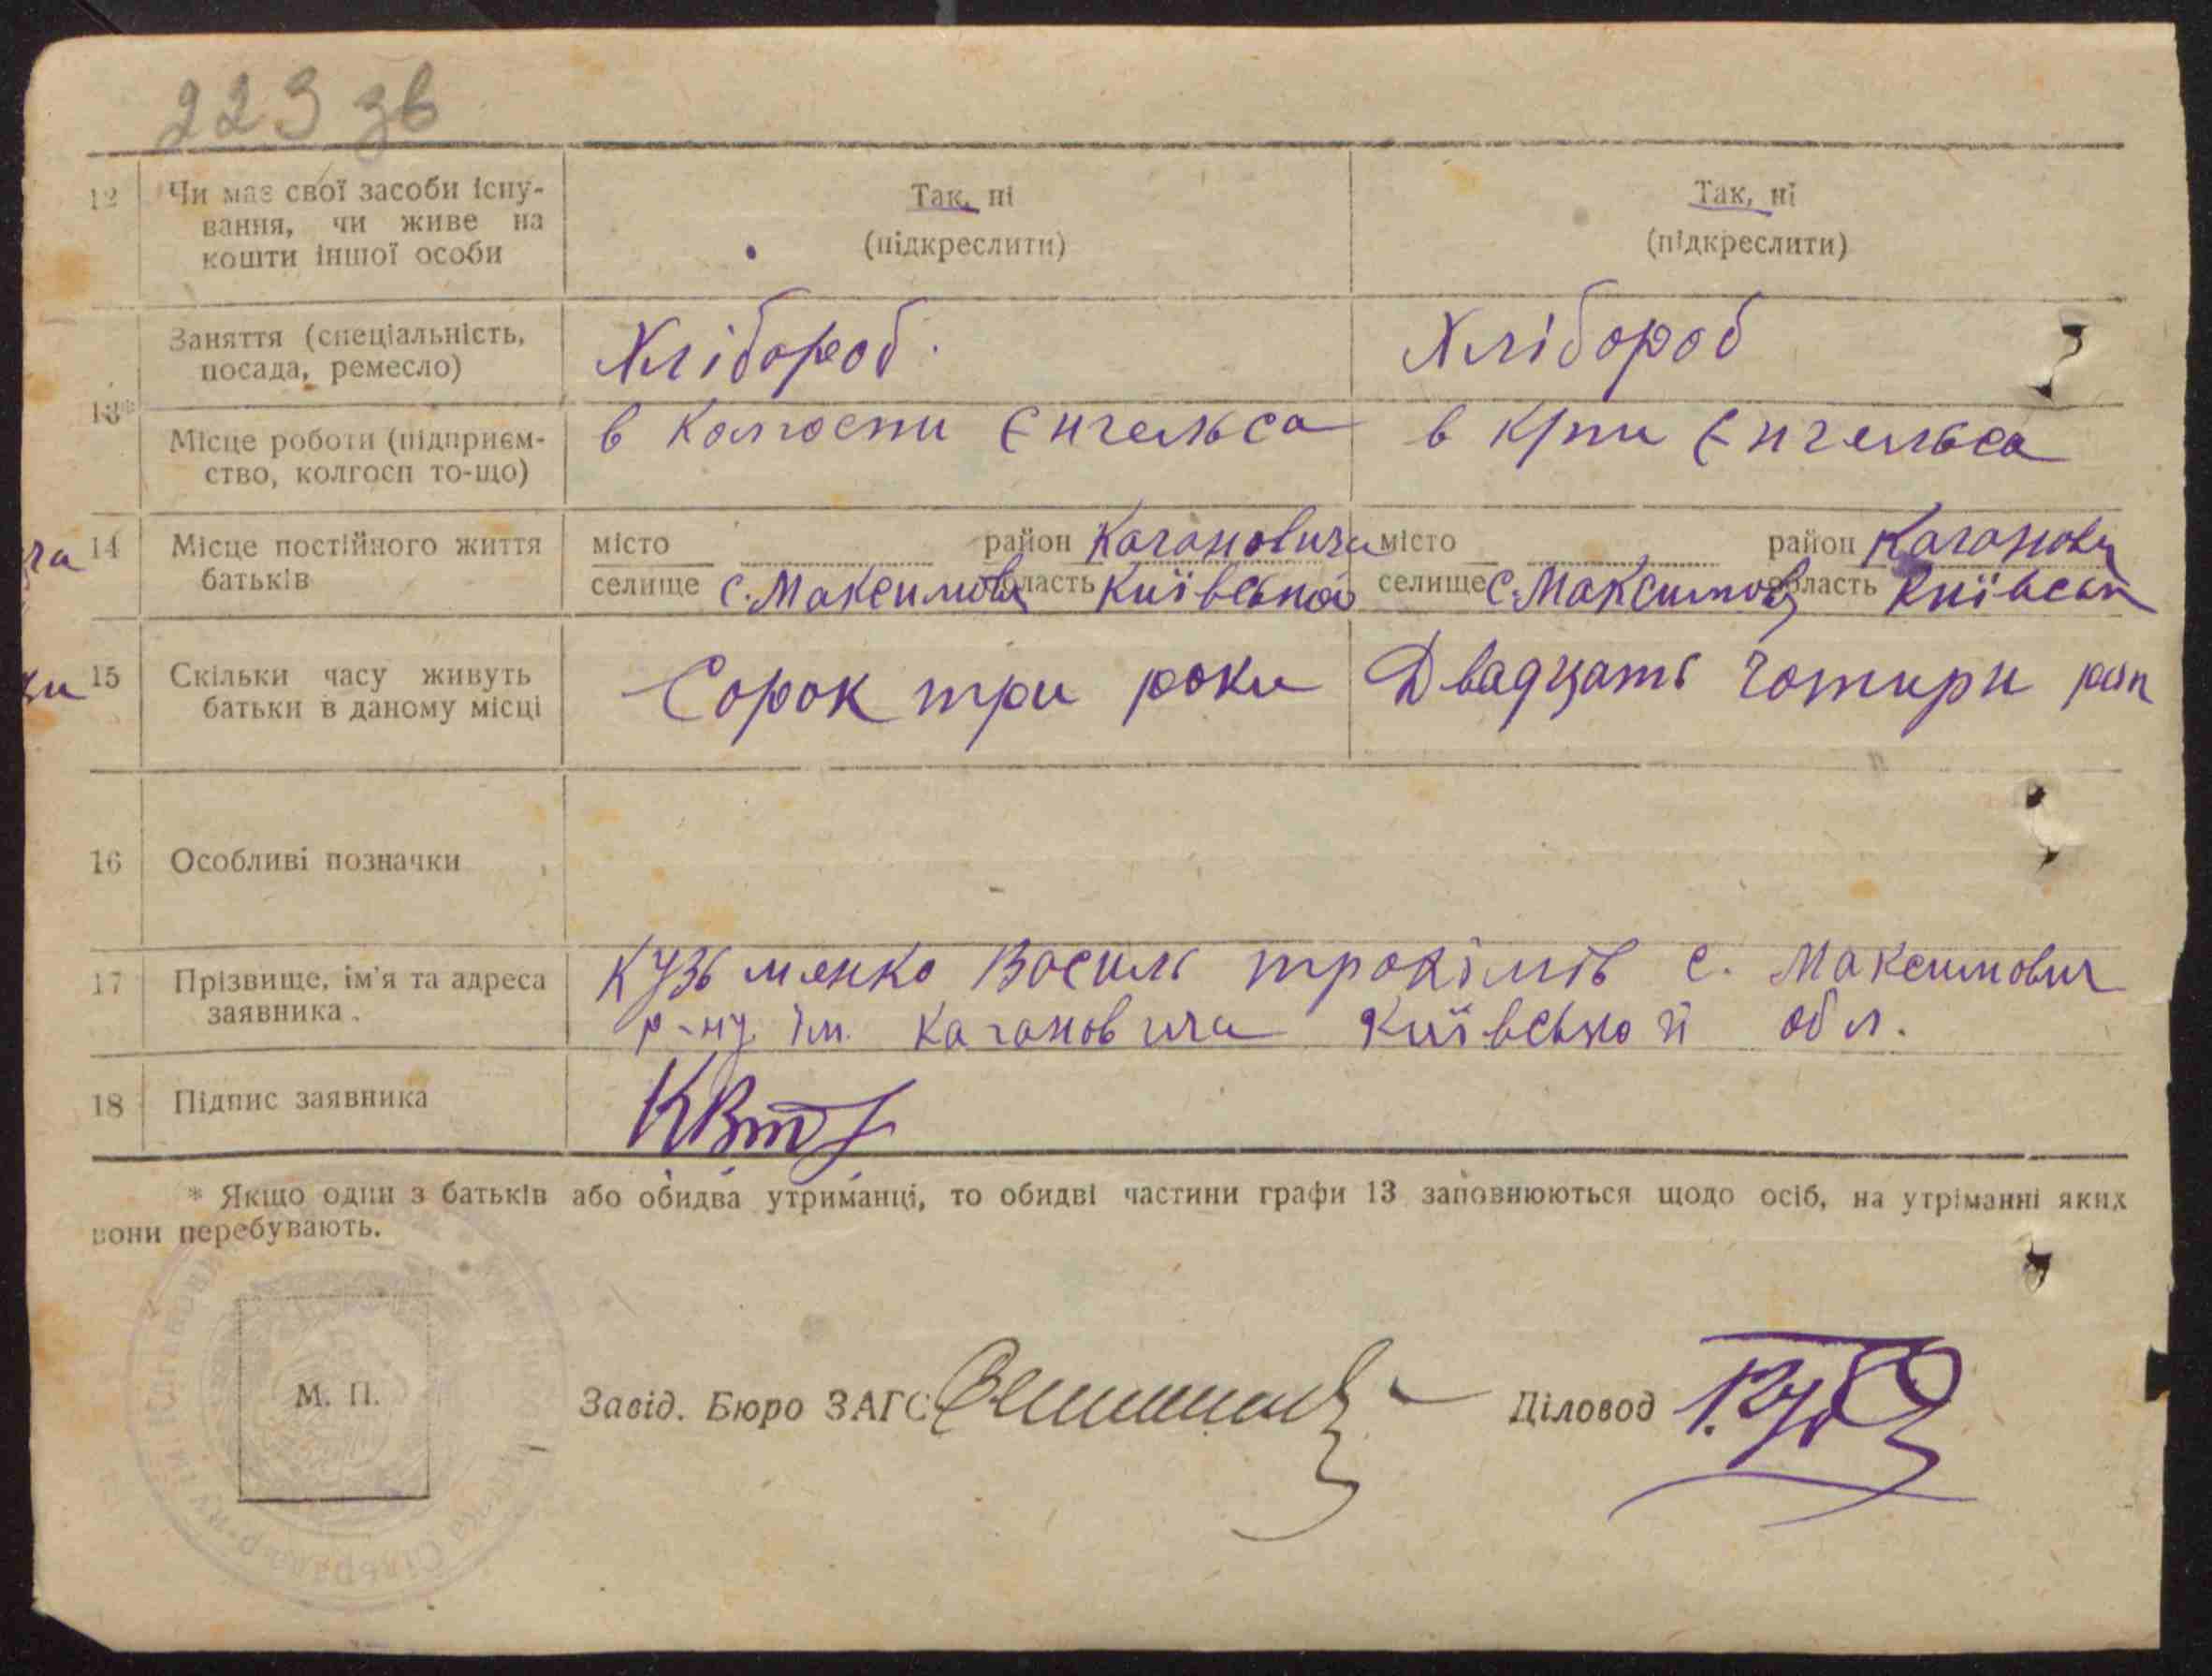 223 зв
12 Чи має свої засоби існу- Так, ні Так, ні
вання, чи живе на (підкреслити) (підкреслити)
кошти іншої особи
Заняття (спеціальність, Хлібороб. Хлібороб
посада, ремесло)
13*
Місце роботи (підприєм- в колгоспи Енгельса в к/пи Енгельса
ство, колгосп то-що)
ча 14 Місце постійного життя місто район Кагановича місто район Каганович
батьків селище с. Максимович область Київської селище с. Максимович область Київськ
ки 15 Скільки часу живуть Сорок три роки Двадцать чотири рок
батьки в даному місці
16 Особливі позначки
17 Прізвище, ім'я та адреса Кузьменко Василь трохімів с. Максимович
заявника. р-ну. ім. Кагановича Київської обл.
18 Підпис заявника
* Якщо один з батьків або обидва утриманці, то обидві частини графи 13 заповнюються щодо осіб, на утріманні яких
вони перебувають.
М. П. Завід. Бюро ЗАГС Діловод